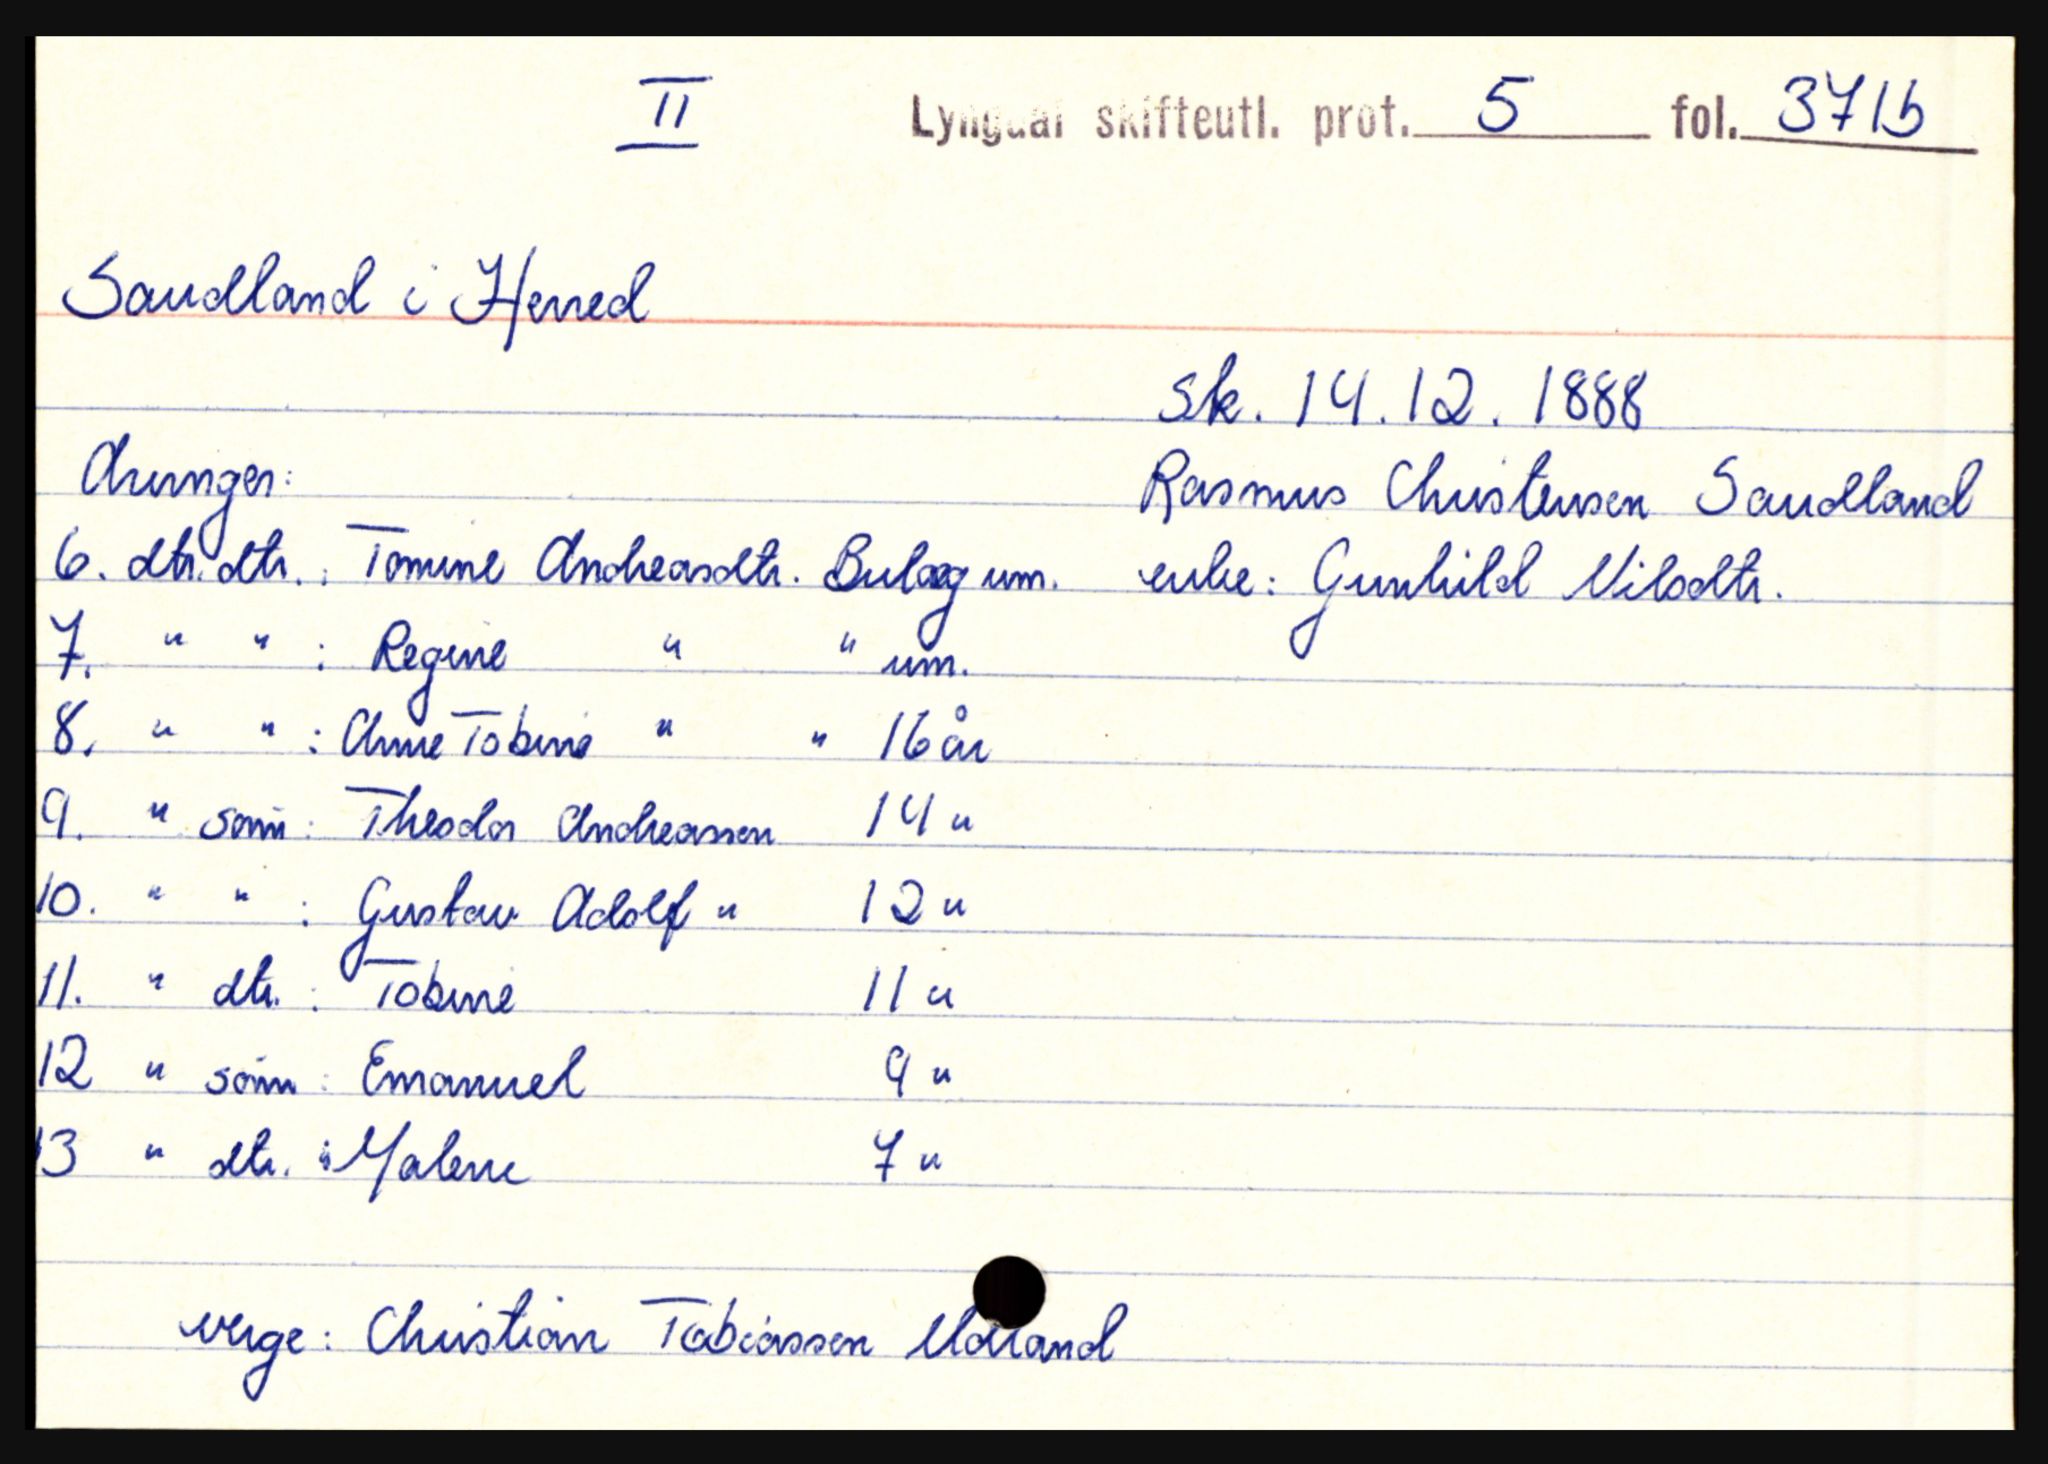 II
Lyngdal skifteutl. prot. 5 fol. 371b
Saudland i Herred
sk. 14.12.1888
Arvinger:
Rasmus Christensen Saudland
6. dtr. dtr. : Tomine Andreasdtr. Bulæg um.
enke: Gunhild Nilsdtr.
7. " " : Regine " " um.
8. " " : Anne Tobine " " 16 år
9. " sønn : Theodor Andreassen 14 "
10. " " : Gustav Adolf " 12 "
11. " dtr. : Tobine 11 "
12 " sønn : Emanuel 9 "
13 " dtr. : Malene 7 "
verge: Christian Tobiassen